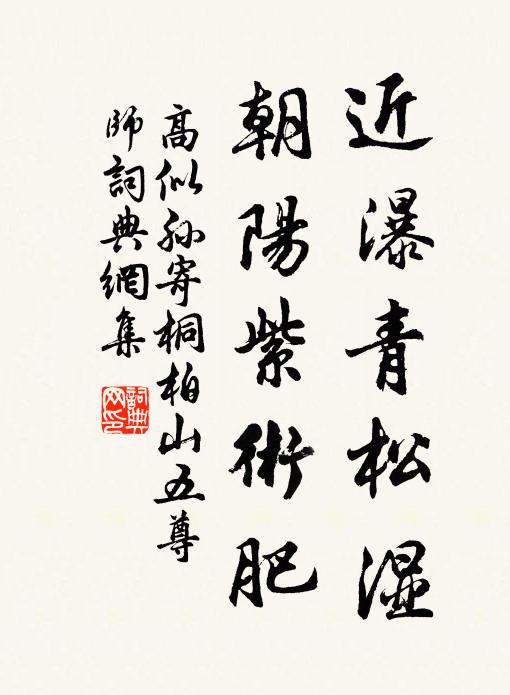 近瀑青松濕
朝陽紫術肥
高似孫寄桐柏山五尊
師詞典網集
詞典網印